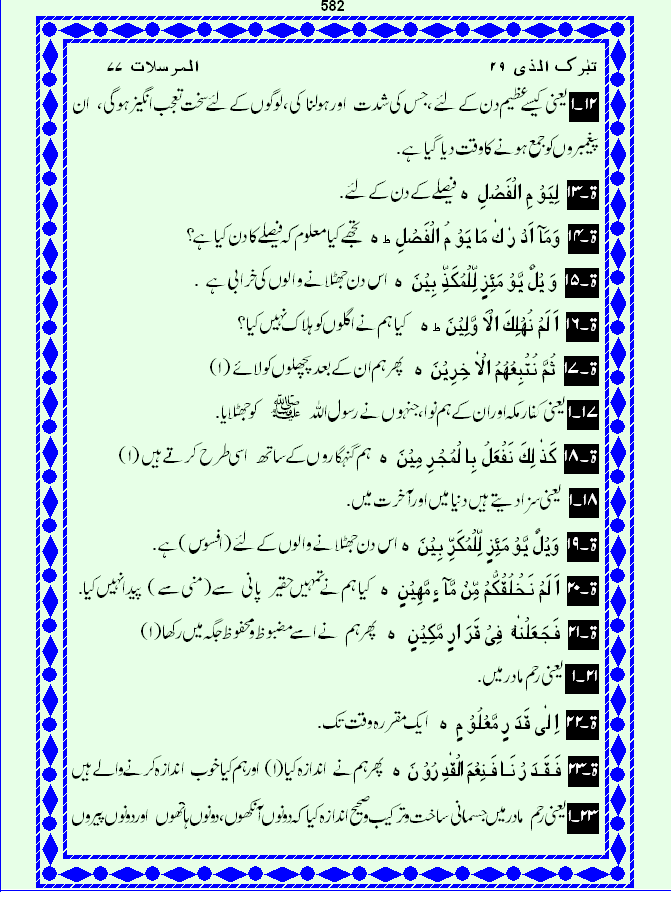 582
تبٰرک الذی ۲۹ المرسلات ۷۷
۱۲۔۱ یعنی کیسے عظیم دن کے لئے، جس کی شدت اور ہولناکی، لوگوں کے لئے سخت تعجب انگیز ہوگی، ان
پیغمبروں کو جمع ہونے کا وقت دیا گیا ہے۔
ۃ۔۱۳ لِیَوْ مِ الْفَصْلِ ہ فیصلے کے دن کے لئے۔
ۃ۔۱۴ وَمَآ اَدْ رٰکَ مَا یَوْ مُ الْفَصْلِ ط ہ تجھے کیا معلوم کہ فیصلے کا دن کیا ہے؟
ۃ۔۱۵ وَ یْلٌ یَّوْ مَئِزٍ لِّلْمُکَذِّ بِیْنَ ہ اس دن جھٹلانے والوں کی خرابی ہے ۔
ۃ۔۱۶ اَ لَمْ نُھْلِکَ الْاَ وَّلِیْنَ ط ہ کیا ہم نے اگلوں کو ہلاک نہیں کیا؟
ۃ۔۱۷ ثُمَّ نُتْبِعُھُمُ الْاٰ خِرِیْنَ ہ پھر ہم ان کے بعد پچھلوں کو لائے (۱)
۱۷۔۱ یعنی کفار مکہ اور ان کے ہم نوا، جنہوں نے رسول اللہ ﷺ کو جھٹلایا۔
ۃ۔۱۸ کَذٰ لِکَ نَفْعَلُ بِا لْمُجْرِ مِیْنَ ہ ہم گنہگاروں کے ساتھ اسی طرح کرتے ہیں (۱)
۱۸۔۱ یعنی سزا دیتے ہیں دنیا میں اور آخرت میں۔
ۃ۔۱۹ وَیْلٌ یَّوْ مَئِزٍ لِّلْمُکَزِّ بِیْنَ ہ اس دن جھٹلانے والوں کے لئے (افسوس) ہے۔
ۃ۔۲۰ اَ لَمْ نَخْلُقْکُّمْ مِّنْ مَّآ ءٍ مَّھِیْنٍ ہ کیا ہم نے تمہیں حقیر پانی سے (منی سے) پیدا نہیں کیا۔
ۃ۔۲۱ فَجَعَلْنٰہُ فِیْ قَرَ ارٍ مَّکِیْنٍ ہ پھر ہم نے اسے مضبوط و محفوظ جگہ میں رکھا (۱)
۲۱۔۱ یعنی رحم مادر میں۔
ۃ۔۲۲ اِلٰی قَدَ رٍ مَّعْلُوْ مٍ ہ ایک مقررہ وقت تک۔
ۃ۔۲۳ فَقَدَ رْ نَا فَنِعْمَ الْقٰدِرُوْنَ ہ پھر ہم نے اندازہ کیا (۱) اور ہم کیا خوب اندازہ کرنے والے ہیں
۲۳۔۱ یعنی رحم مادر میں جسمانی ساخت و ترکیب و صحیح اندازہ کیا کہ دونوں آنکھوں، دونوں ہاتھوں اور دونوں پیروں